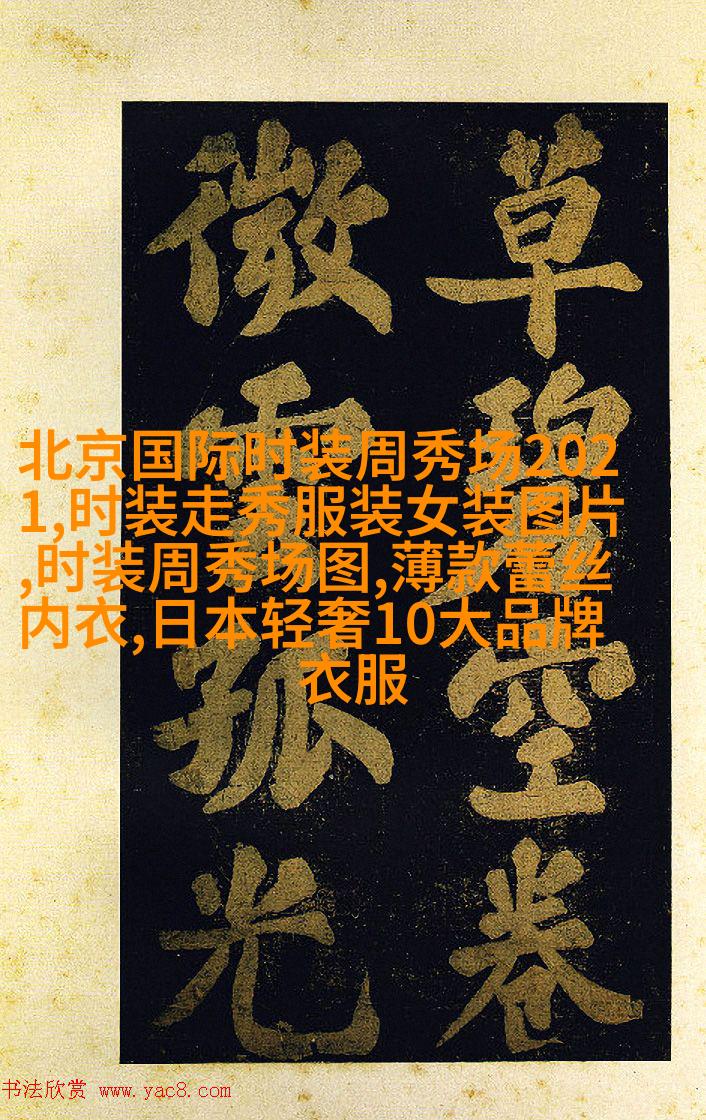 草碧空卷
微雲孤光
北京国际时装周秀场202
1,时装走秀服装女装图片
,时装周秀场图,薄款蕾丝
内衣,日本轻奢10大品牌
衣服
书法欣赏 www.yac8.com